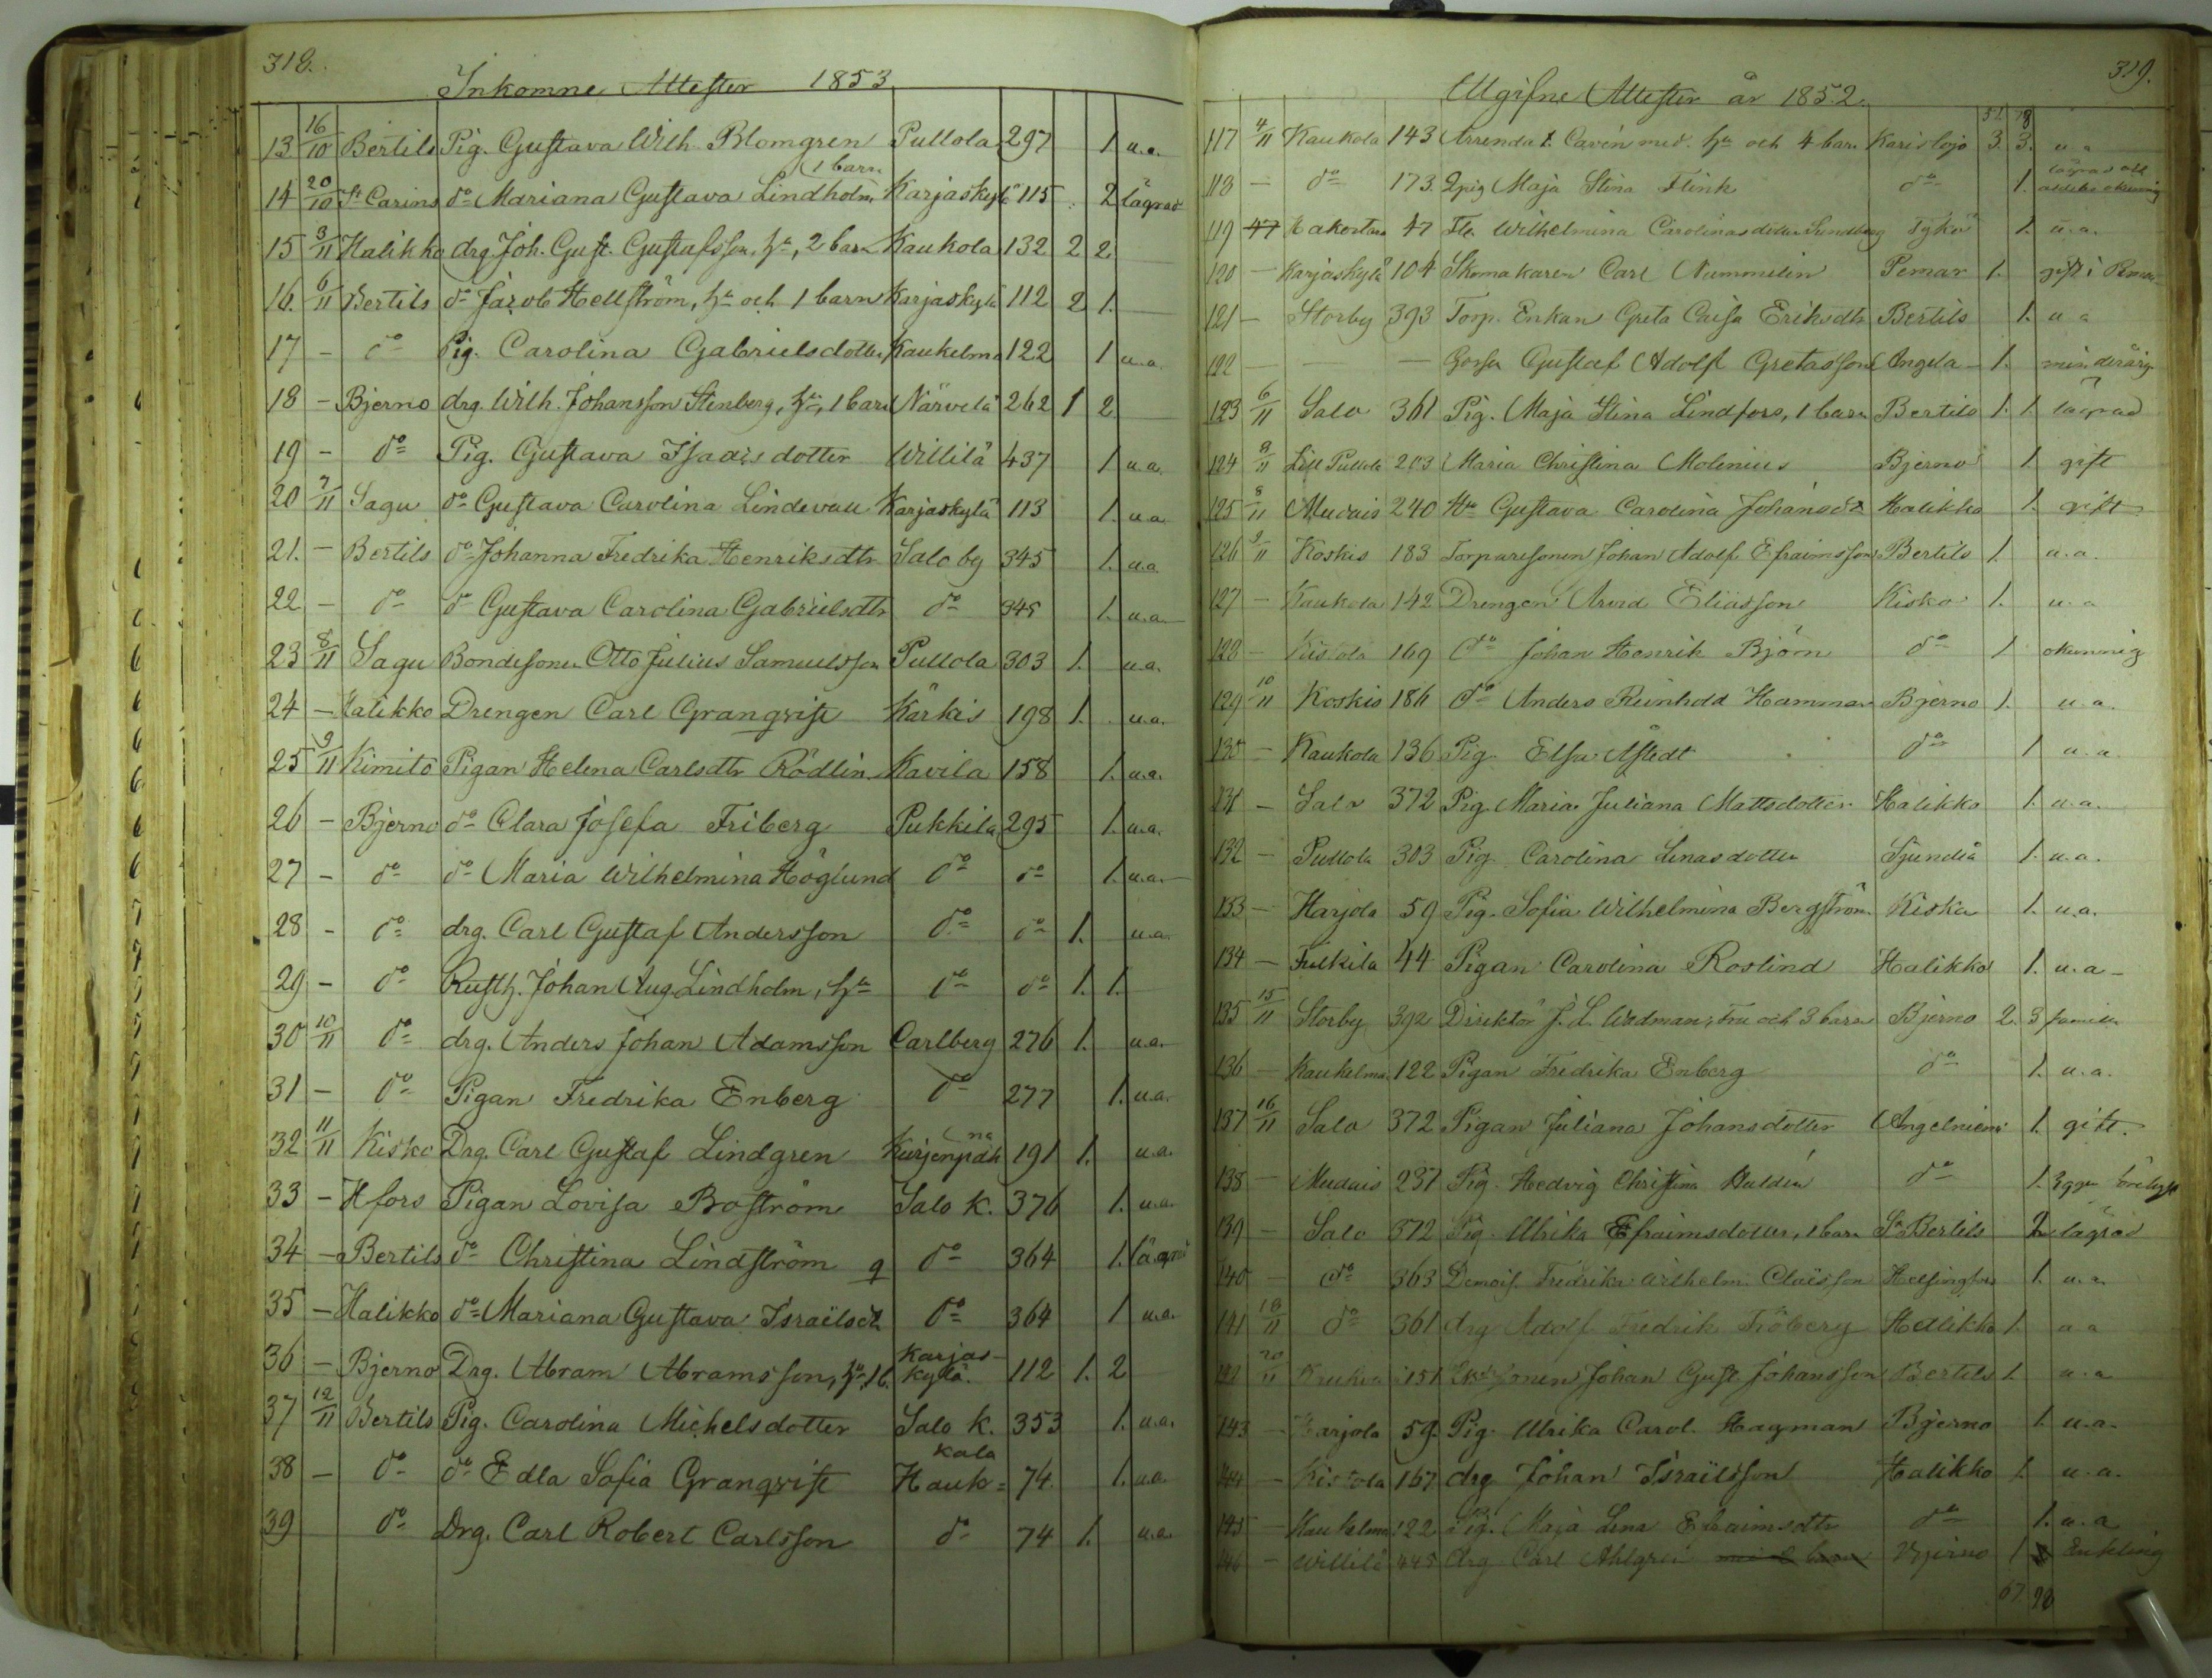 318.
Inkomne Attester 1853
13 16/10 Bertils Pig. Gustava Wilh. Blomgren Pullola 297 1 u.a.
1 barn
14 20/10 St Carins do Mariana Gustava Lindholm, Karjaskylä 115 2 lägrad
15 3/11 Halikko drg. Joh. Gust. Gustafsson, hu, 2 barn Kaukola 132 2 2
16. 6/11 Bertils do Jacob Hellström, hu och 1 barn Karjaskylä 112 2 1.
17 - do Pig. Carolina Gabrielsdotter Kaukelma 122 1 u.a.
18 - Bjerno drg. Wilh. Johansson Stenberg, hu, 1 barn Närvelä 262 1 2
19 - do Pig. Gustava Isaacsdotter Willilä 437 1 u.a.
20 7/11 Sagu do Gustava Carolina Lindevall Karjaskylä 113 1. u.a.
21. - Bertils do Johanna Fredrika Henriksdtr Salo by 345 1. u.a.
22 - do do Gustava Carolina Gabrielsdtr do 345 1. u.a.
23 8/11 Sagu Bondesonen Otto Julius Samuelsson Pullola 303 1. u.a.
24 - Halikko Drengen Carl Granqvist Kärkis 198 1. u.a.
25 9/11 Kimito Pigan Helena Carlsdtr Rödlin Kavila 158 1. u.a.
26 - Bjerno do Clara Josefa Friberg Pukkila 295 1. u.a.
27 - do do Maria Wilhelmina Höglund do do 1. u.a.
28 - do drg. Carl Gustaf Andersson do do 1. u.a.
29 - do Rusth. Johan Aug. Lindholm, hu do do 1. 1.
30 10/11 do drg. Anders Johan Adamsson Carlberg 276 1. u.a.
31 - do Pigan Fredrika Enberg do 277 1. u.a.
32 11/11 Kisko Drg. Carl Gustaf Lindgren Kurjenpäh na 191 1. u.a.
33 - Hfors Pigan Lovisa Broström Salo K. 376 1. u.a.
34 - Bertils do Christina Lindström do 364 1. lägrad
35 - Halikko do Mariana Gustava Israëlsdr do 364 1 u.a.
36 - Bjerno Drg. Abram Abramsson, hu, 1 b. Karjas-kylä. 112 1. 2
37 12/11 Bertils Pig. Carolina Michelsdotter Salo K. 353 1. u.a.
38 - do do Edla Sofia Granqvist Hauk= kala 74. 1. u.a.
39 do Drg. Carl Robert Carlsson do 74 1. u.a.
319.
Utgifne Attester år 1852.
117 4/11 Kaukola 143 Arrendat. Cavén med hu och 4 barn Karislojo 3. 3. u.a
118 - do 173. Maja Stina Flink do 1. okunnig
119 47 Hakostaro 47 Wilhelmina Carolinasdotter Sundberg Tykö 1. u.a.
120 - Karjaskylä 104 Skomakaren Carl Nummelin Pemar 1. gift i Pemar
121 - Storby 393 Torp. Enkan Greta Caisa Eriksdtr Bertils 1. u.a
122 - - - Gossen Gustaf Adolf Gretasson Angela 1. minderårig
123 6/11 Salo 361 Pig. Maja Stina Lindfors, 1 barn Bertils 1. 1. lägrad
124 8/11 Lill Pullola 203 Maria Christina Molenius Bjerno 1. gift
125 8/11 Murais 240 Gustava Carolina Johansdr Halikko 1. gift
126 9/11 Koskis 183 Torparesonen Johan Adolf Efraimsson Bertils 1. u.a.
127 - Kaukola 142 Drengen Arvid Eliasson Kisko 1. u.a
128 - Kistola 169 do Johan Henrik Björn do 1 okunnig
129 10/11 Koskis 186 do Anders Reinhold Hammar Bjerno 1. u.a.
130 - Kaukola 136 Pig. Elsa Åstedt do 1 u.a.
131 - Salo 372 Pig. Maria Juliana Mattsdotter Halikko 1. u.a.
132 - Pullola 303 Pig. Carolina Linasdotter Sjundiå 1. u.a.
133 - Harjola 59 Pig. Sofia Wilhelmina Bergström Kisko 1. u.a.
134 - Fulkila 44 Pigan Carolina Roslind Halikko 1. u.a -
135 15/11 Storby 392 Direktör J. L. Widman, fru och 3 barn Bjerno 2. 3 familie
136 - Kaukelma 122 Pigan Fredrika Enberg do 1. u.a.
137 16/11 Salo 372 Pigan Juliana Johansdotter Angelniemi 1. gift.
138 - Murais 237 Pig. Hedvig Christina do 1.
139 - Salo 372 Pig. Ulrika Efraimsdotter, 1 barn St Bertils 2 lägrad
140 - do 363 Demois. Fredrika Wilhelm. Claisson Helsingfors 1. u.a.
141 18/11 do 361 drg Adolf Fredrik Fröberg Halikko 1. u.a
142 20/11 151 Johan Gust. Johansson Bertils 1. u.a
143 - Harjola 59. Pig. Ulrika Carol. Hagman Bjerno 1. u.a.
144 - Kistola 167 drg Johan Israëlsson Halikko 1. u.a.
145 - Kaukelma 122 Pig. Maja Lena Efraimsdtr do 1. u.a
146 - Willilä 445 drg Carl Ahlgren Bjerno 1 Enkling
67 90